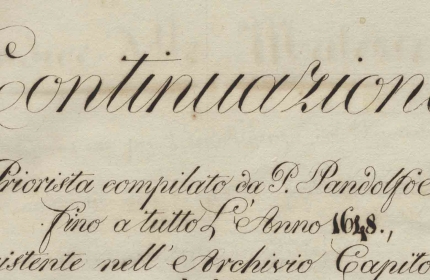 Continuazione
Priorista compilato da P. Pandolfo
fino a tutto L'Anno 1648.,
istente nell'Archivio Capito